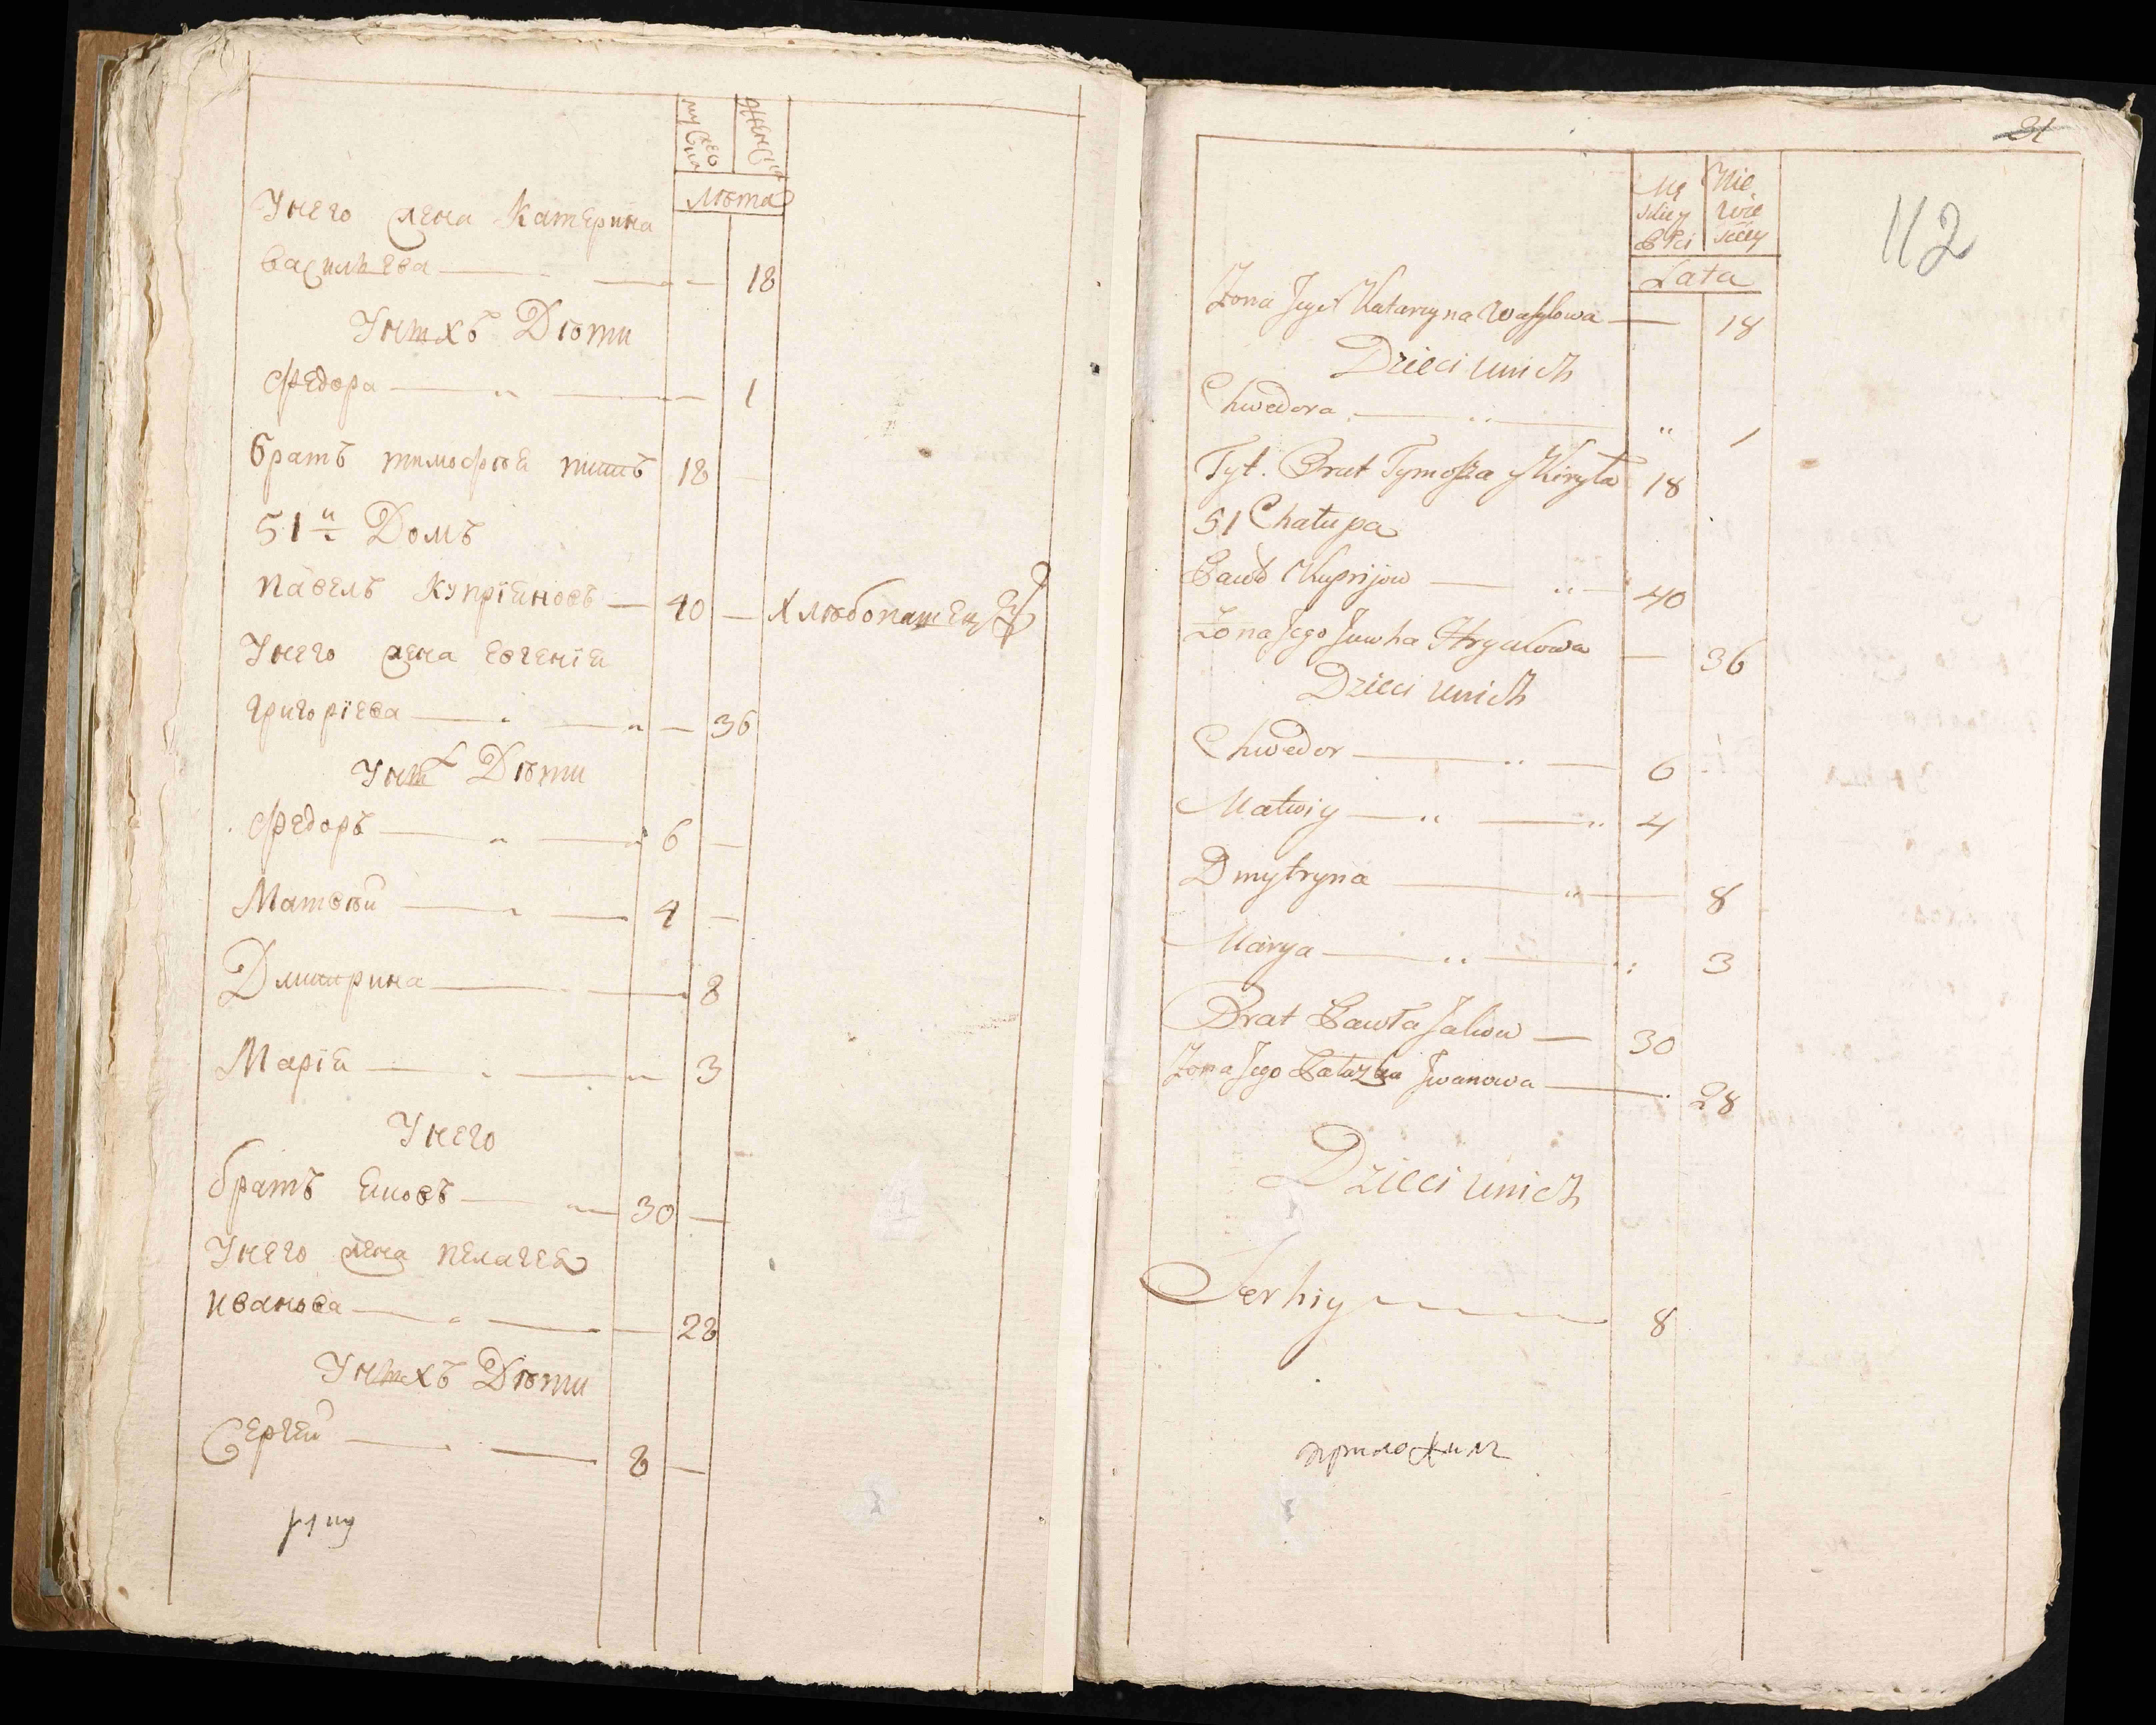 мускаго
женска
Лѣта
У него жена Катерина
васильева — — 18
У нихъ Дѣти
Федора — — 1
братъ тимофѣй 18 —
51й Домъ
павелъ купріяновъ — 40 — Хлѣбопашецъ
У него жена евгенія
григоріева — — 36
У них Дѣти
Федоръ — — 6 —
Матвѣй — — 4 —
Дмитрина — — 8
Марія — — 3
У него
братъ яковъ — — 30 —
У него жена пелагея
иванова — — 28
У нихъ Дѣти
Сергей — — 8 —
31
112
Mę skiey Płci
Nie wie sciey
Lata
Żona Jego Katarzyna Wasylowa — 18
Dzieci unich
Chwedora — — " 1
Tyt. Brat Tymosza y Kiryła 18
51 Chałupa
Pawło Kuprijow — — 40
Żona Jego Juwha Hrycowa — 36
Dzieci unich
Chwedor — — 6
Matwiy — — 4
Dmytryna — — 8
Marya — — 3
Brat Pawła Jakow — 30
Żona Jego Pałazka Jwanowa — 28
Dzieci unich
Serhiy — 8
приложилъ